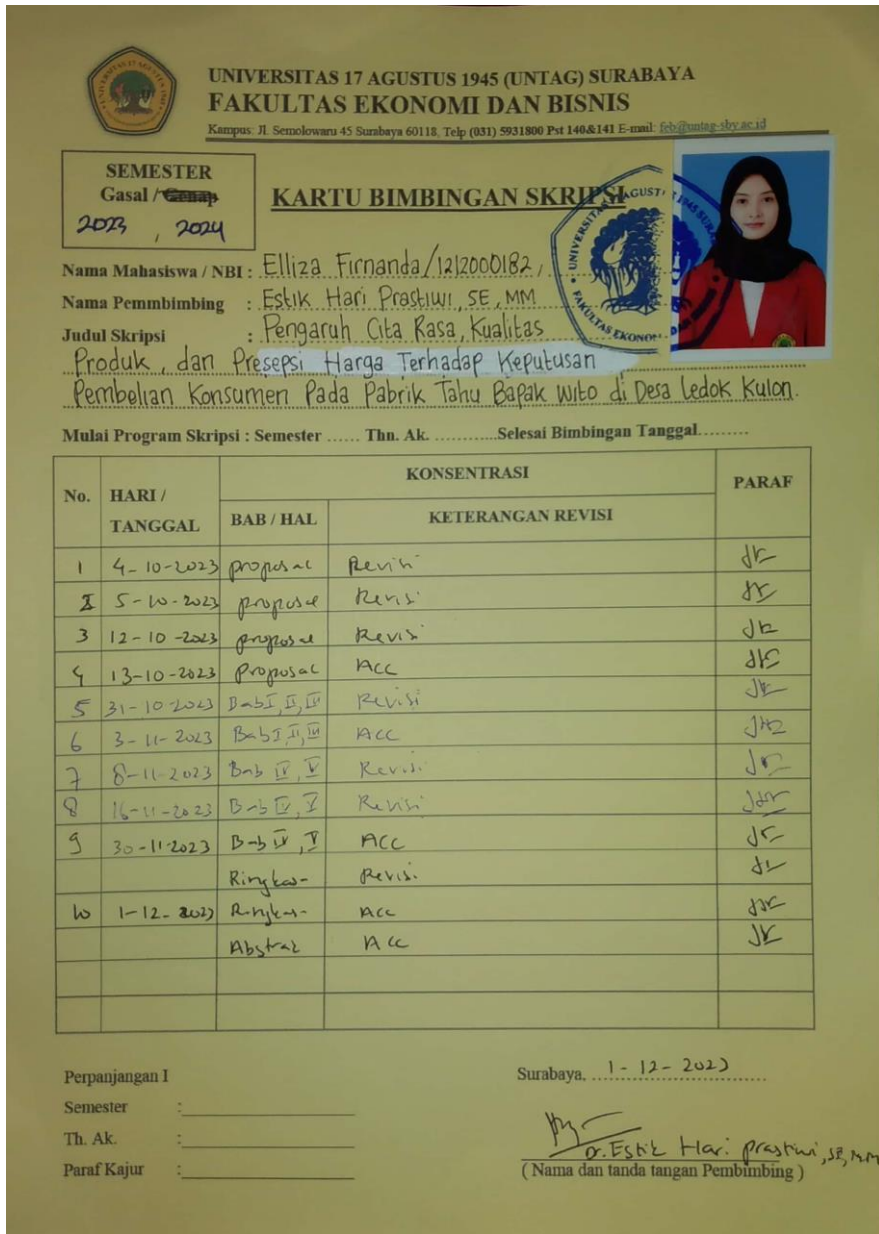 UNIVERSITAS 17 AGUSTUS 1945 (UNTAG) SURABAYA
FAKULTAS EKONOMI DAN BISNIS
Kampus: Jl. Semolowaru 45 Surabaya 60118, Telp (031) 5931800 Pst 140&141 E-mail: feb@untag-sby.ac.id
SEMESTER
Gasal / Genap
2023 , 2024
KARTU BIMBINGAN SKRIPSI
Nama Mahasiswa / NBI : Elliza Firnanda/1212000182,
Nama Pemmbimbing : Estik Hari Prastiwi, SE, MM
Judul Skripsi : Pengaruh Cita Rasa, Kualitas
Produk, dan Presepsi Harga Terhadap Keputusan
Pembelian Konsumen Pada Pabrik Tahu Bapak Wito di Desa Ledok Kulon.
Mulai Program Skripsi : Semester ...... Thn. Ak. ............Selesai Bimbingan Tanggal.........
No. HARI / TANGGAL KONSENTRASI PARAF
BAB / HAL KETERANGAN REVISI
1 4-10-2023 proposal Revisi
2 5-10-2023 proposal Revisi
3 12-10-2023 proposal Revisi
4 13-10-2023 Proposal ACC
5 31-10-2023 Bab I, II, III Revisi
6 3-11-2023 Bab I, II, III ACC
7 8-11-2023 Bab IV, V Revisi
8 16-11-2023 Bab IV, V Revisi
9 30-11-2023 Bab IV, V ACC
Ringkas- Revisi
10 1-12-2023 Ringkas- ACC
Abstrak ACC
Perpanjangan I
Semester :
Th. Ak. :
Paraf Kajur :
Surabaya, 1-12-2023
Dr. Estik Hari Prastiwi, SE, MM
( Nama dan tanda tangan Pembimbing )